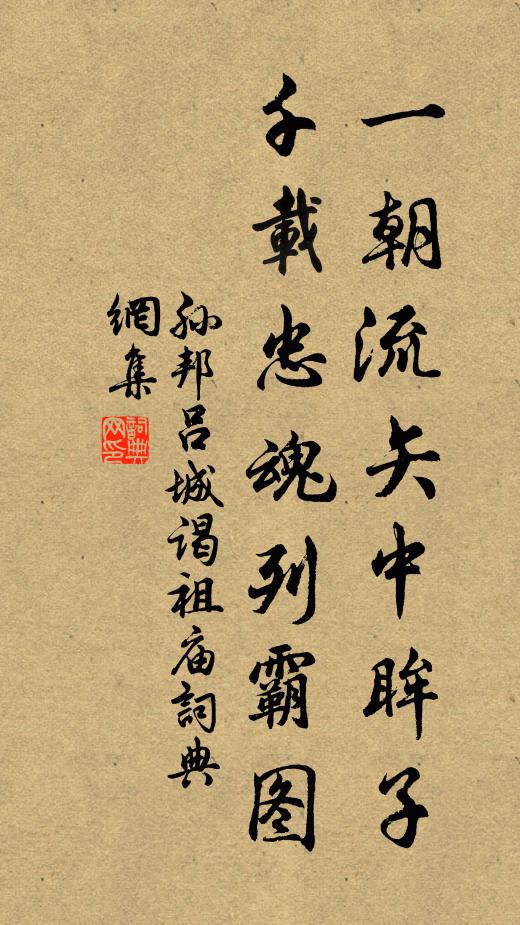 一朝流矢中眸子
千載忠魂列霸图
孙邦吕城谒祖庙詞典
網集
詞典
网印